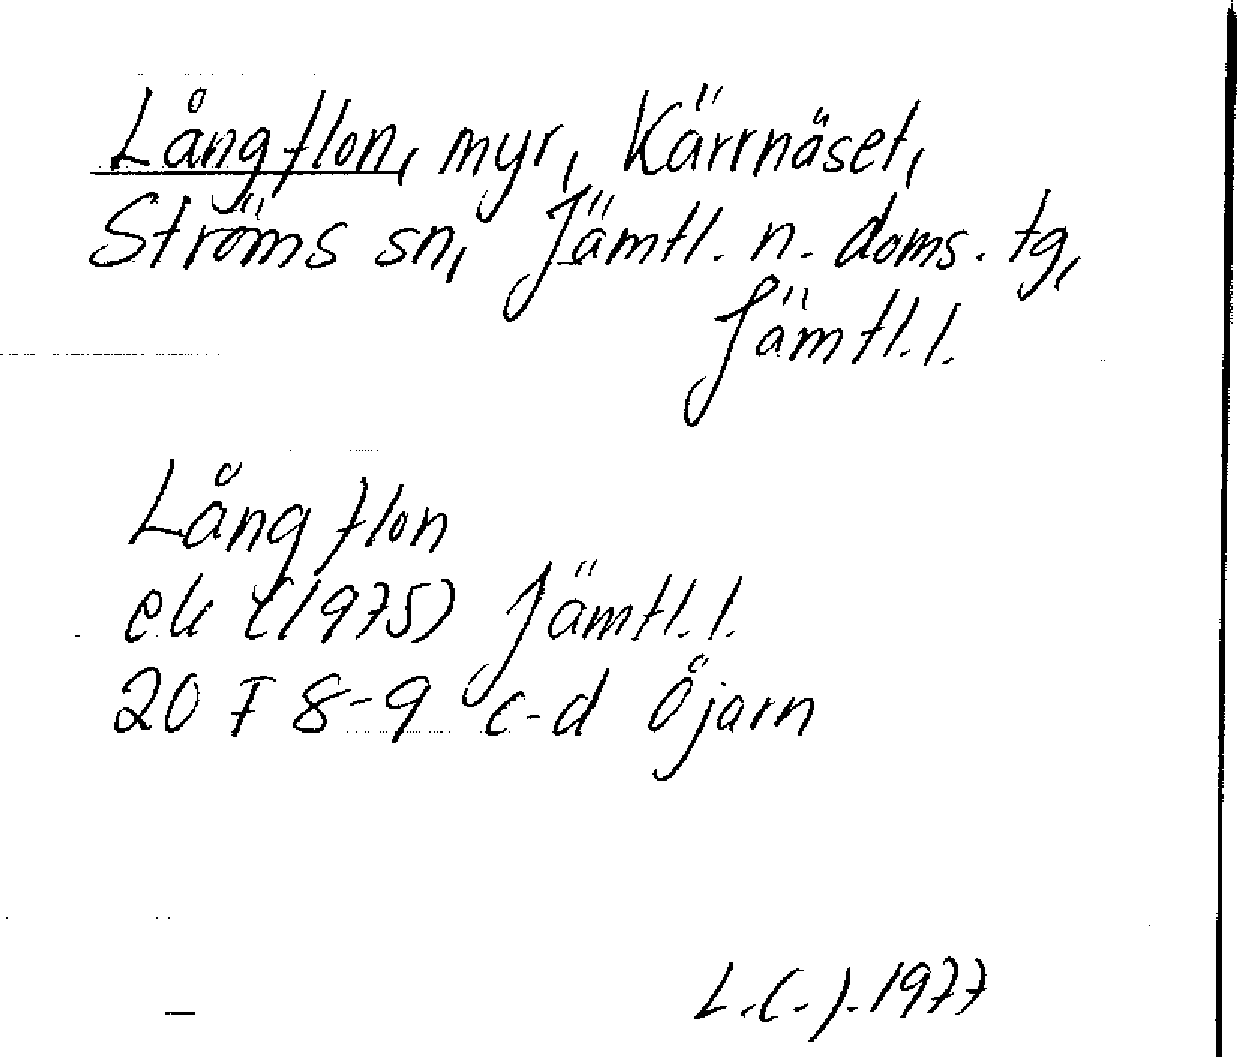 Långflon, myr, Kärrnäset,
Ströms sn, Jämtl. n. doms. tg,
Jämtl. l.
Långflon
ek (1975) Jämtl. l.
20 F 8-9 c-d Öjarn
L.C.J. 1977